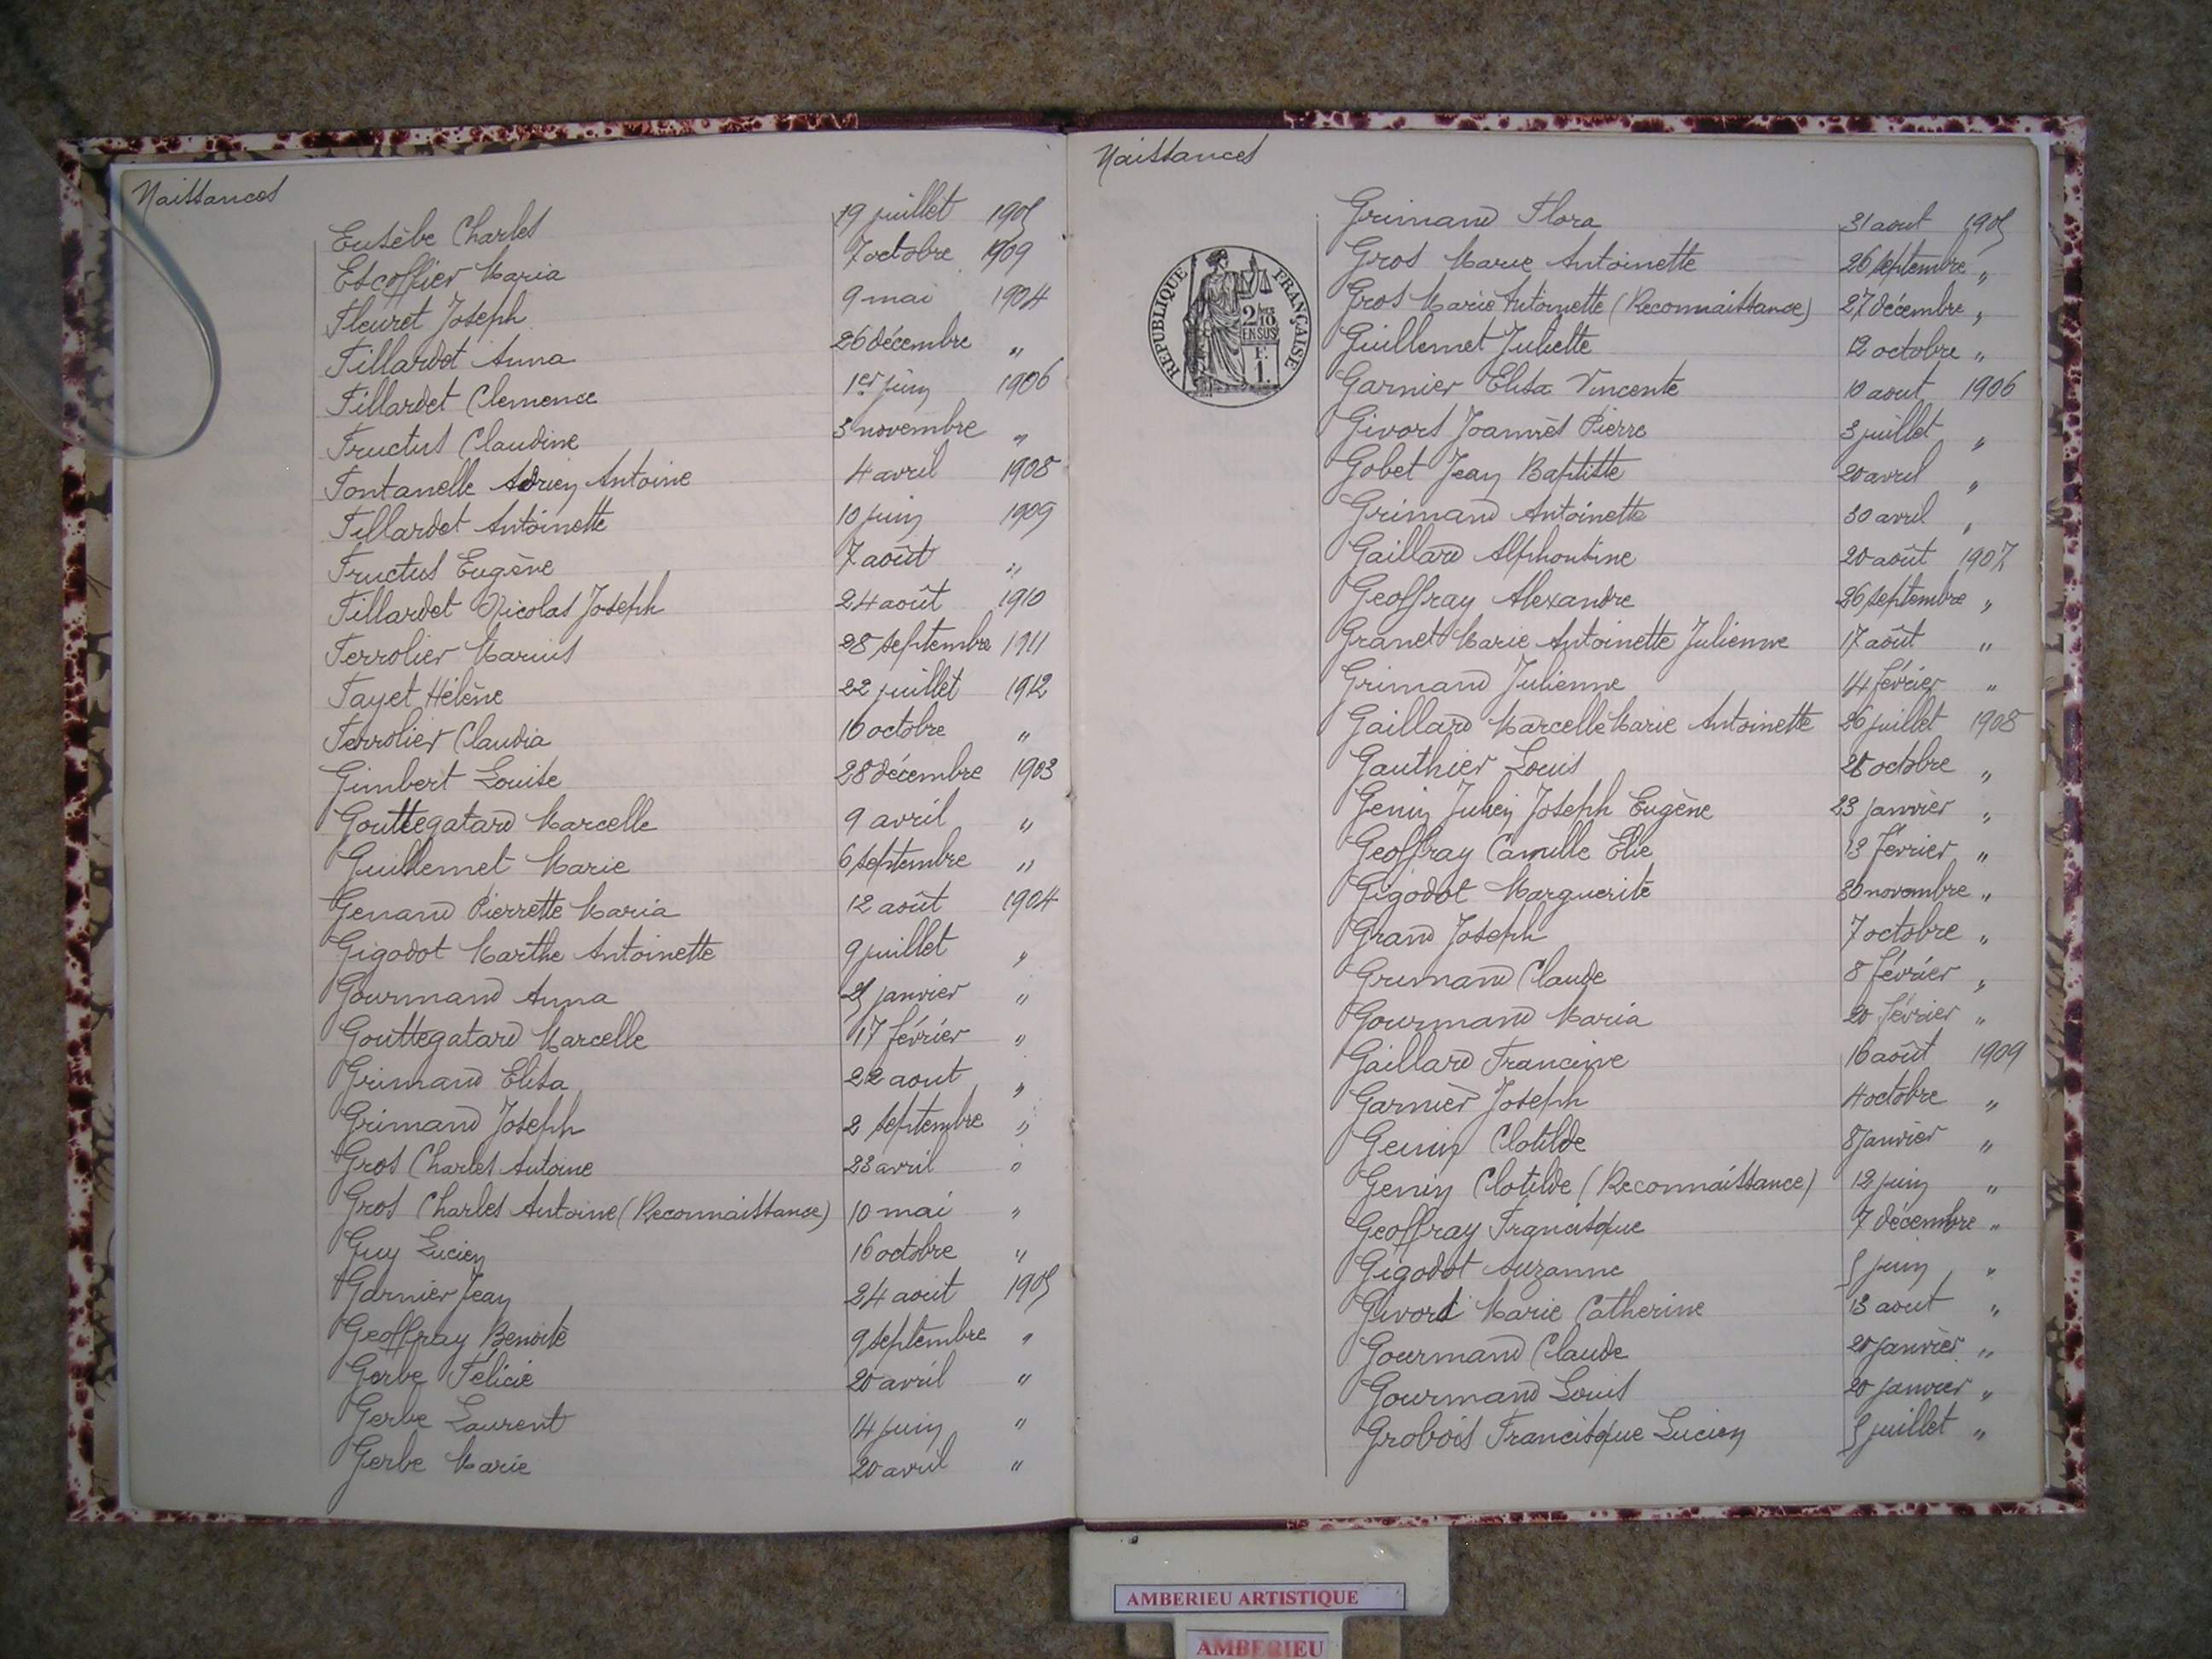 Naissances
Eusèbe Charles 19 juillet 1905
Escoffier Maria 7 octobre 1909
Fleuret Joseph 9 mai 1904
Fillardet Anna 26 décembre "
Fillardet Clemence 1er juin 1906
Fructus Claudine 3 novembre "
Fontanelle Adrien Antoine 4 avril 1908
Fillardet Antoinette 10 juin 1909
Fructus Eugène 7 août "
Fillardet Nicolas Joseph 24 août 1910
Ferrolier Marius 28 septembre 1911
Fayet Hélène 22 juillet 1912
Ferrolier Claudia 10 octobre "
Gimbert Louise 28 décembre 1903
Gouttegatard Marcelle 9 avril "
Guillemet Marie 6 septembre "
Genand Pierrette Maria 12 août 1904
Gigodot Marthe Antoinette 9 juillet "
Gourmand Anna janvier "
Gouttegatard Marcelle 17 février "
Grimand Elisa 22 aout "
Grimand Joseph 2 septembre "
Gros Charles Antoine 23 avril "
Gros Charles Antoine (Reconnaissance) 10 mai "
Guy Lucien 16 octobre "
Garnier Jean 24 août 1905
Geoffray Benoite 9 septembre "
Gerbe Félicie 20 avril "
Gerbe Laurent 14 juin "
Gerbe Marie 20 avril "
Naissances
REPUBLIQUE FRANÇAISE
2/10 EN SUS
1 F.
Grimand Flora 31 aout 1905
Gros Marie Antoinette 26 septembre "
Gros Marie Antoinette (Reconnaissance) 27 décembre "
Guillemet Juliette 12 octobre "
Garnier Elisa Vincente 10 aout 1906
Givors Joannès Pierre 3 juillet "
Gobet Jean Baptiste 20 avril "
Grimand Antoinette 30 avril "
Gaillard Alphonsine 20 août 1907
Geoffray Alexandre 26 septembre "
Granet Marie Antoinette Julienne 17 août "
Grimand Julienne 14 février "
Gaillard Marcelle Marie Antoinette 26 juillet 1908
Gauthier Louis octobre "
Genin Julien Joseph Eugène 23 janvier "
Geoffray Camille Elie 13 février "
Gigodot Marguerite 30 novembre "
Grand Joseph 7 octobre "
Grimand Claude 8 février "
Gourmand Maria 20 février "
Gaillard Francine 16 août 1909
Garnier Joseph 4 octobre "
Genin Clotilde 8 janvier "
Genin Clotilde (Reconnaissance) 12 juin "
Geoffray Francisque 7 décembre "
Gigodot Suzanne 5 juin "
Givord Marie Catherine 13 aout "
Gourmand Claude 20 janvier "
Gourmand Louis 20 janvier "
Grobois Francisque Lucien 5 juillet "
AMBERIEU ARTISTIQUE
AMBERIEU